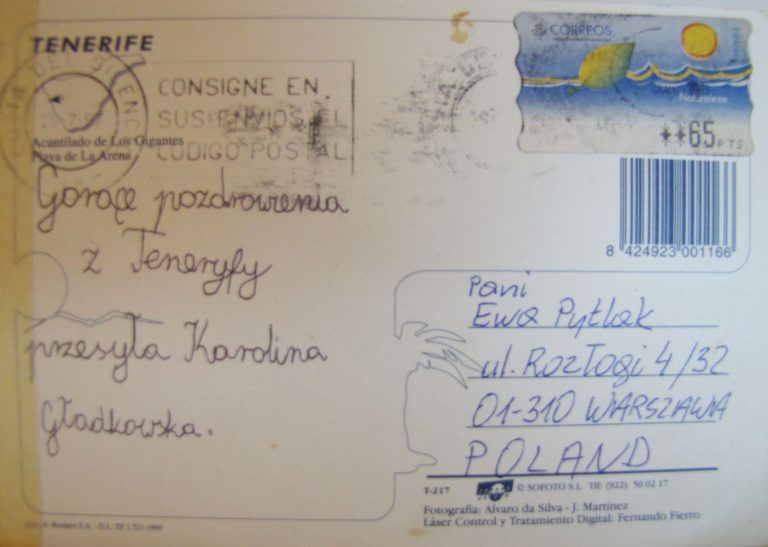 TENERIFE
CORREOS
Naturaleza
**65 PTS
CONSIGNE EN
SUS ENVIOS EL
CODIGO POSTAL
Acantilado de Los Gigantes
Playa de La Arena
8 424923 001166
Gorące pozdrowienia
z Teneryfy
przesyła Karolina
Gładkowska.
Pani
Ewa Pytlak
ul. Rozłogi 4/32
01-310 WARSZAWA
POLAND
T-217 © SOFOTO S.L. Tlf: (922) 50 02 17
Fotografía: Alvaro da Silva - J. Martínez
Láser Control y Tratamiento Digital: Fernando Fierro
Romero S.A. - D.L. TF 1.721-1995